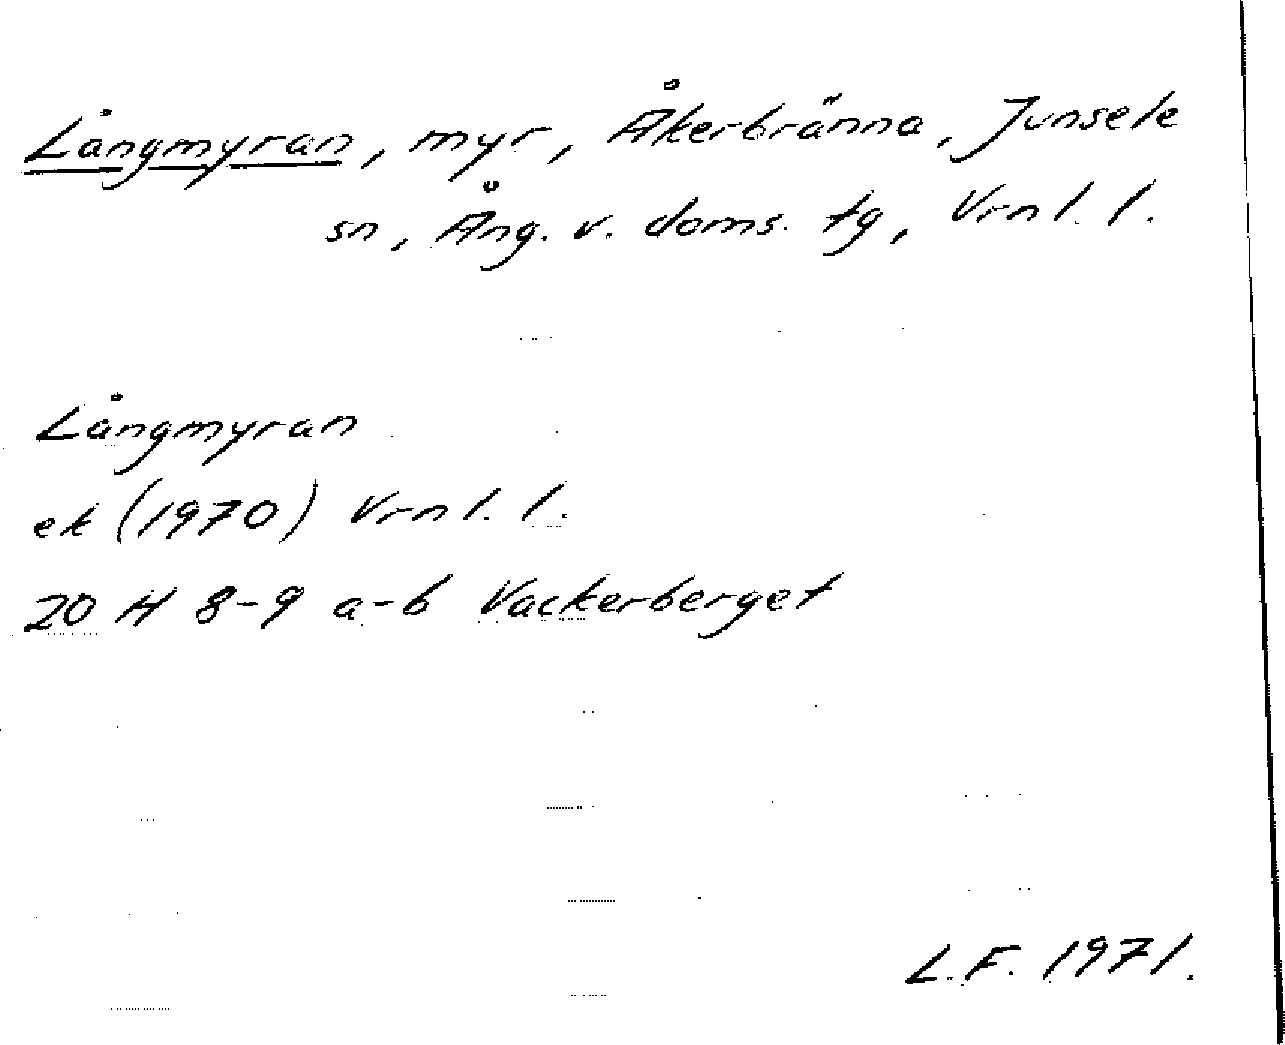 Långmyran, myr, Åkerbränna, Junsele
sn, Ång. v. doms. tg, Vrnl. l.
Långmyran
ek (1970) Vrnl. l.
20 H 8-9 a-b Vackerberget
L.F. 1971.